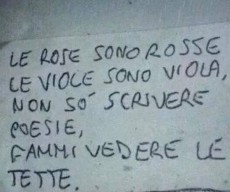 LE ROSE SONO ROSSE
LE VIOLE SONO VIOLA,
NON SO' SCRIVERE
POESIE,
FAMMI VEDERE LE
TETTE.